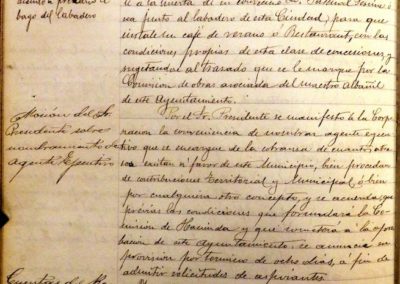 bajo del Labadero
a la puerta de un
va junto al labadero de esta Ciudad, para que
instale su café de verano o Restaurant, con las
condiciones propias de esta clase de concesiones y
sugetandose al trazado que se le marque por la
Comision de obras asociada del Maestro Albañil
de este Ayuntamiento.
Mocion del Sr.
Presidente sobre
nombramiento de
agente Ejecutivo
Por el Sr. Presidente se manifestó a la Corpo
racion la conveniencia de nombrar agente ejecu
tivo que se encargue de la cobranza de cuantos
existan a favor de este Municipio, bien procedan
de contribuciones Territorial y Municipal, ó bien
por cualquiera otro concepto, y se acuerda que
prévias las condiciones que formulará la Co
mision de Hacienda y que someterá a la apro
bacion de este Ayuntamiento, se anuncie su
provision por termino de ocho dias, a fin de
admitir solicitudes de aspirantes.
Cuentas de